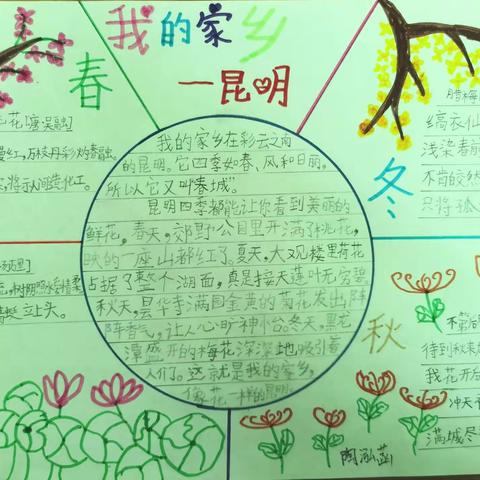 我的家乡
—昆明
春
花[唐 吴融]
红,万枝丹彩灼春融。
将于人间造化工。
我的家乡在彩云之南
的昆明。它四季如春、风和日丽,
所以它又叫“春城”
昆明四季都能让你看到美丽的
鲜花,春天,郊野公园里开满了桃花,
映的一座山都红了。夏天,大观楼里荷花
占据了整个湖面,真是接天莲叶无穷碧。
秋天,昙华寺满园金黄的菊花发出阵
阵香气,让人心旷神怡。冬天,黑龙
潭盛开的梅花深深地吸引着
人们了。这就是我的家乡,
像花一样的昆明。
冬
腊梅
缟衣仙
浅染春
不肯皎然
只将孤
树阴照水爱晴柔
立上头。
秋
待到秋来
我花开后
冲天
满城尽
陶泓菡